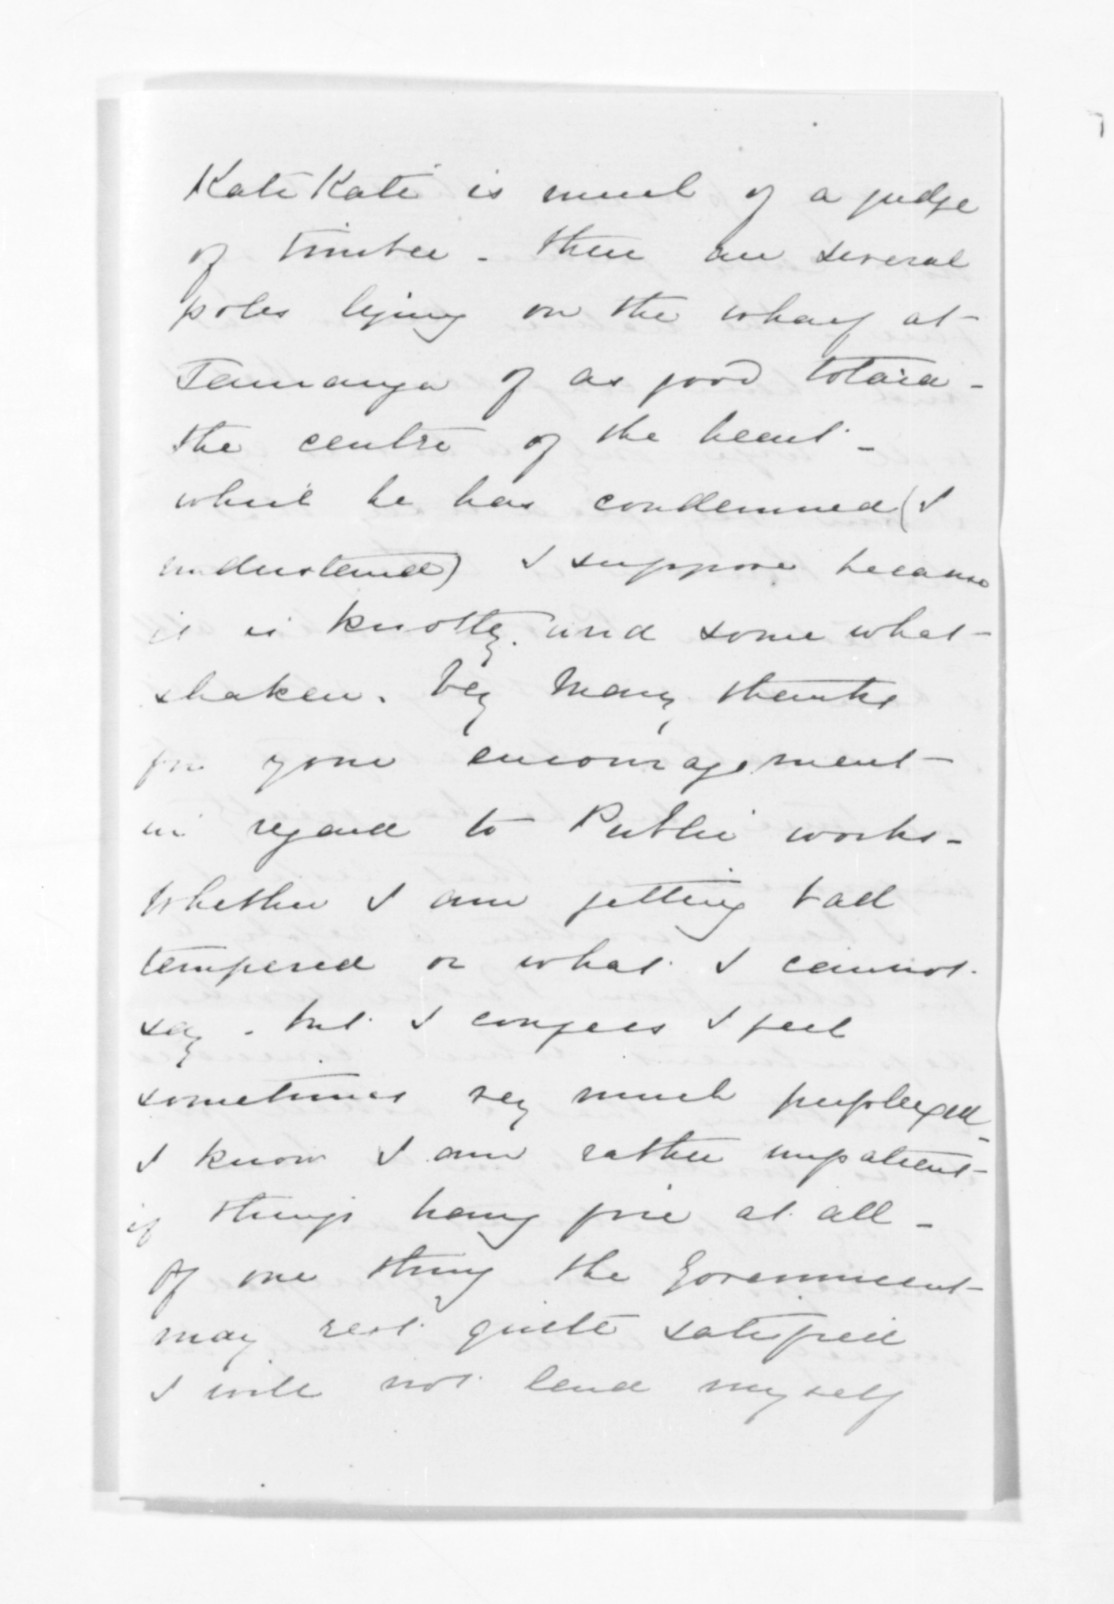 Kati Kati is much of a judge
of timber - there are several
poles lying on the wharf at
Tauranga of as good totara -
the centre of the heart -
which he has condemned (I
understand) I suppose because
it is knotty and some what
shaken. Very Many thanks
for your encouragement
in regard to Public works -
Whether I am getting bad
tempered or what I cannot
say - but I confess I feel
sometimes very much perplexed -
I know I am rather impatient
if things hang fire at all -
Of one thing the Government
may rest quite satisfied
I will not lend myself